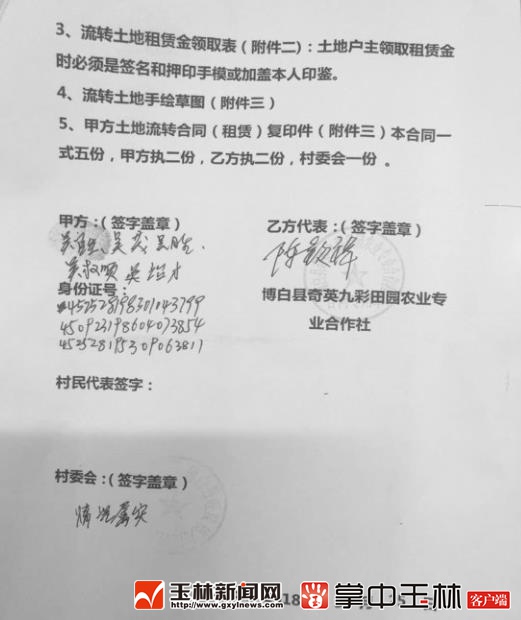 3、流转土地租赁金领取表（附件二）：土地户主领取租赁金
时必须是签名和押印手模或加盖本人印鉴。
4、流转土地手绘草图（附件三）
5、甲方土地流转合同（租赁）复印件（附件三）本合同一
式五份，甲方执二份，乙方执二份，村委会一份 。
甲方：（签字盖章）
乙方代表：（签字盖章）
博白县奇英九彩田园农业专
业合作社
身份证号：
452528198301043799
450923198604073854
452528195309063811
村民代表签字：
村委会：（签字盖章）
情况属实
玉林新闻网
www.gxylnews.com
掌中玉林
客户端